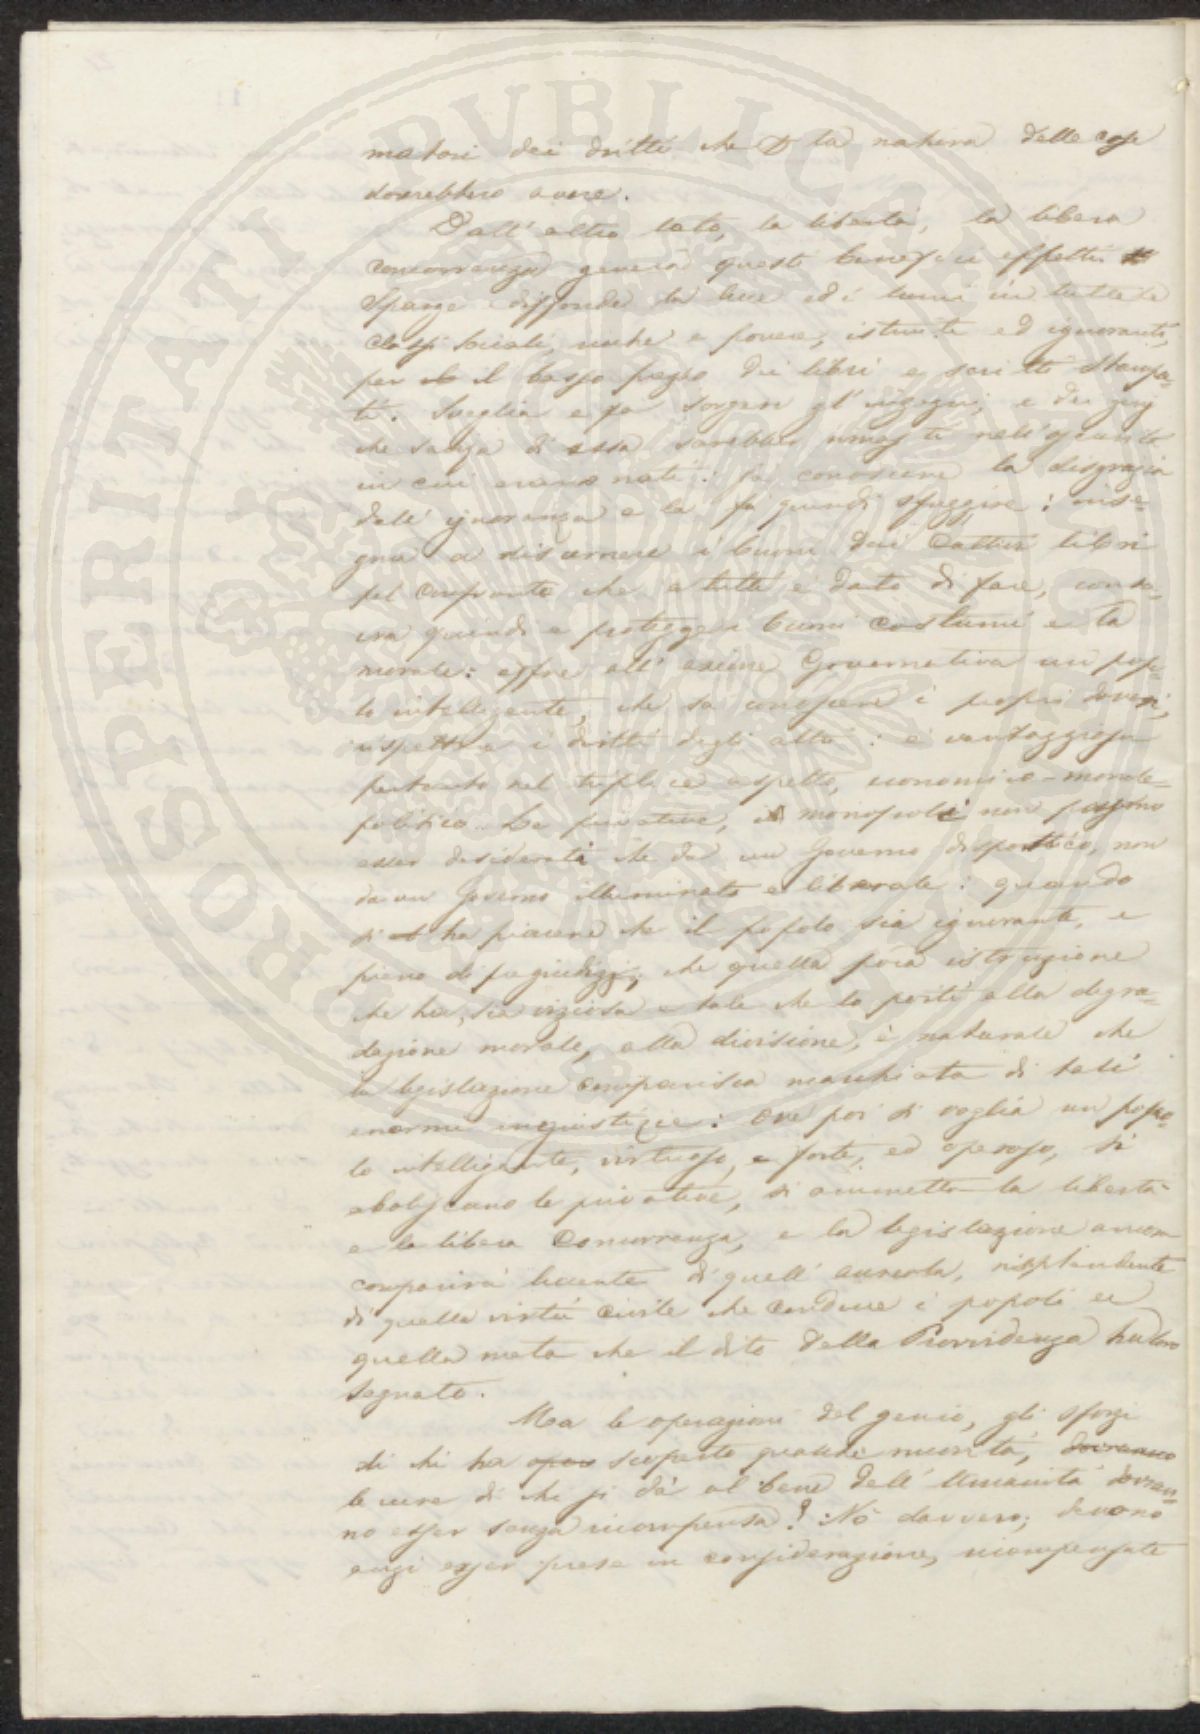 matori dei dritti che la natura delle cose
dovrebbero avere.
Dall' altro lato, la libertà, la libera
concorrenza genera questi beneficii effetti
Sparge e diffonde la luce ed i lumi in tutte le
classi sociali, ricche e povere, istruite ed ignoranti,
per il basso prezzo dei libri e scritti stampa-
ti. Sveglia e fa sorgere gl' ingegni, e dei genj
che senza di essa sarebbero rimasti nell'oscurità
in cui erano nati: fa conoscere la disgrazia
dell' ignoranza e la fa quindi sfuggire: inse-
gna a discernere i buoni dai cattivi libri
pel confronto che a tutti è dato di fare, conse-
rva quindi e protegge i buoni costumi e la
morale: offre all' azione Governativa un popo-
lo intelligente, che sa conoscere i proprii doveri,
rispetta i dritti degli altri: è vantaggiosa
pertanto nel triplice aspetto, economico-morale-
politico. Le privative, i monopolii non possono
esser desiderati che da un Governo dispotico, non
da un Governo illuminato e liberale: quando
si ha piacere che il popolo sia ignorante, e
pieno di pregiudizj, che quella poca istruzione
che ha, sia viziosa e tale che lo porti alla degra-
dazione morale, alla divisione, è naturale che
la legislazione comparisca macchiata di tali
enormi ingiustizie: ove poi si voglia un popo-
lo intelligente, virtuoso, e forte, ed operoso, si
aboliscano le privative, si ammetta la libertà
e la libera concorrenza, e la legislazione ancora
comparirà lucente di quell' aureola, risplendente
di quella virtù civile che conduce i popoli a
quella meta che il dito della Provvidenza ha loro
segnato.
Ma le operazioni del genio, gli sforzi
di chi ha scoperto qualche novità, dovranno
le cure di chi si dà al bene dell' Umanità dovran-
no esser senza ricompensa? Nò davvero; devono
anzi esser prese in considerazione, ricompensate